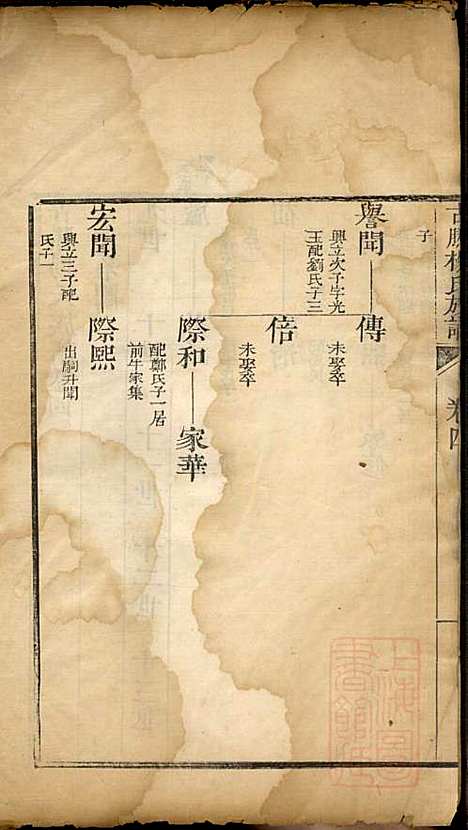 古勝楊氏族譜
卷四
子
譽聞
興立次子字光
玉配劉氏子三
傳
未娶卒
倍
未娶卒
際和
配鄭氏子一居
前牛家集
家華
宏聞
興立三子配
氏子一
際熙
出嗣升聞
上海圖
書館藏